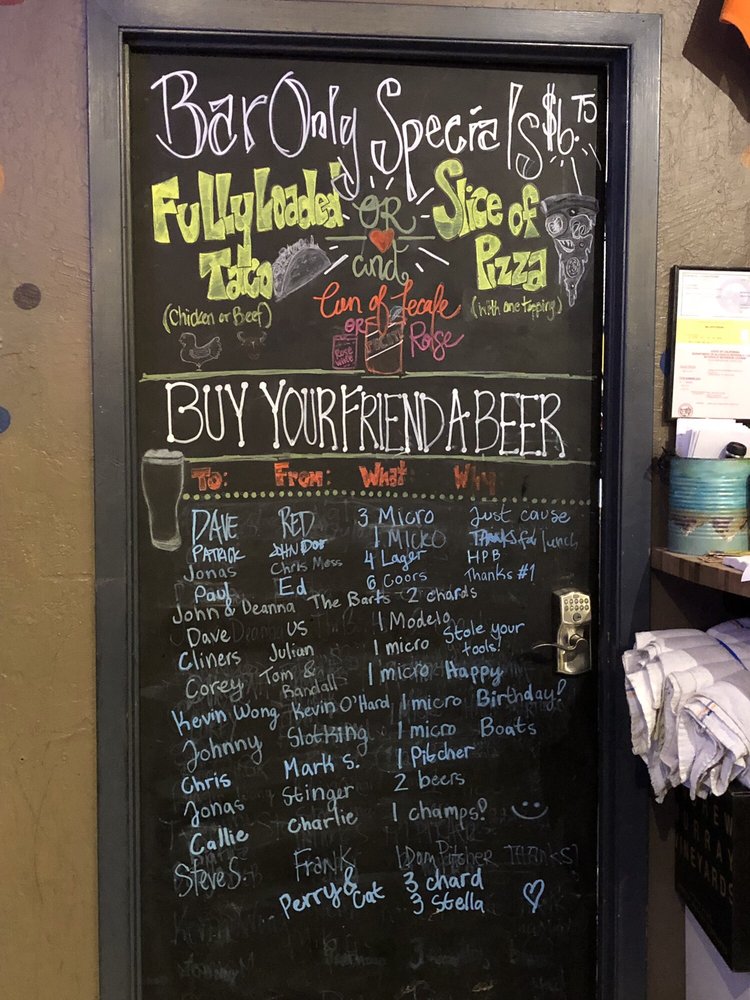 Bar Only Specials $6.75
Fully Loaded Taco
(Chicken or Beef)
OR
and
Slice of Pizza
(with one topping)
Cun of Tecate
OR Rose
BUY YOUR FRIEND A BEER
To: From: What: Why
DAVE RED 3 Micro Just cause
PATRICK 1 Micro THANKS for lunch
Jonas Chris Moss 4 Lager HPB
Paul Ed 6 Coors Thanks #1
John & Deanna The Barts 2 chards
Dave US 1 Modelo
Cliners Julian 1 micro Stole your tools!
Corey Tom & Randall 1 micro Happy
Kevin Wong Kevin O'Hard 1 micro Birthday!
Johnny Slotking 1 micro Boats
Chris Mark S. 1 Pitcher
Jonas Stinger 2 beers
Callie Charlie 1 champs!
Steve S. Frank 1 Dom Pitcher THANKS
Perry & Cat 3 chard
3 Stella